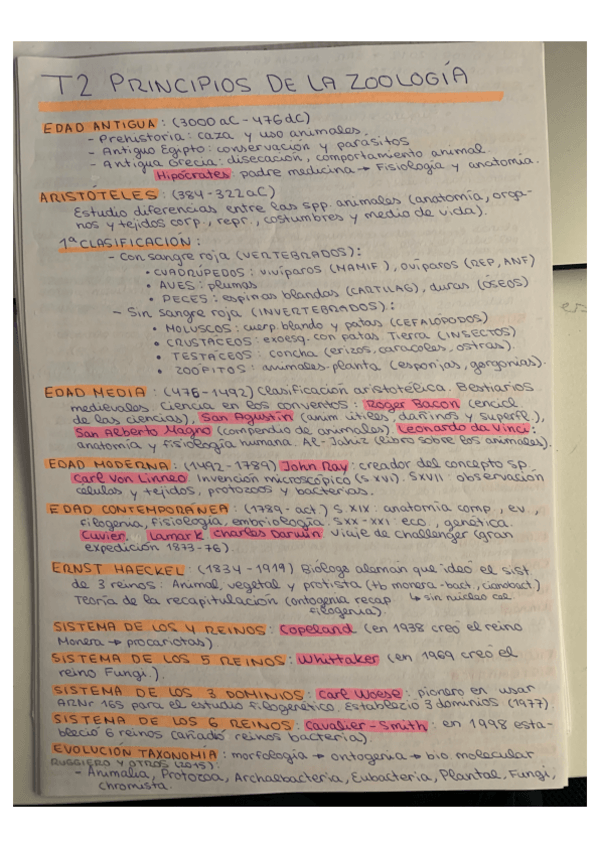 T2 PRINCIPIOS DE LA ZOOLOGÍA
EDAD ANTIGUA: (3000 aC - 476 dC)
- Prehistoria: caza y uso animales.
- Antiguo Egipto: conservación y parásitos
- Antigua Grecia: disecación, comportamiento animal.
Hipócrates: padre medicina → Fisiología y anatomía.
ARISTÓTELES: (384-322 aC)
Estudio diferencias entre las spp. animales (anatomía, orga-
nos y tejidos corp., repr., costumbres y medio de vida).
1ª CLASIFICACIÓN:
- Con sangre roja (VERTEBRADOS):
• CUADRÚPEDOS: vivíparos (MAMIF), ovíparos (REP, ANF)
• AVES: plumas
• PECES: espinas blandas (CARTILAG), duras (ÓSEOS)
- Sin sangre roja (INVERTEBRADOS):
• MOLUSCOS: cuerp. blando y patas (CEFALÓPODOS)
• CRUSTÁCEOS: exoesq. con patas. Tierra (INSECTOS)
• TESTÁCEOS: concha (erizos, caracoles, ostras).
• ZOOPITOS: animales-planta (esponjas, gorgonias).
EDAD MEDIA: (476-1492) Clasificación aristotélica. Bestiarios
medievales. Ciencia en los conventos: Roger Bacon (encicl.
de las ciencias), San Agustín (anim útiles dañinos y superfl.),
San Alberto Magno (compendio de animales) Leonardo da Vinci:
anatomía y fisiología humana. Al-Jahiz (libro sobre los animales).
EDAD MODERNA: (1492-1789) John Ray: creador del concepto sp.
Carl Von Linneo. Invención microscópico (s XVI). SXVII: observación
células y tejidos, protozoos y bacterias.
EDAD CONTEMPORÁNEA: (1789-act.) S. XIX: anatomía comp., ev.,
filogenia, fisiología, embriología. SXX-XXI: eco., genética.
Cuvier, Lamark Charles Darwin Viaje de Challenger (gran
expedición 1873-76).
ERNST HAECKEL: (1834-1919) Biólogo alemán que ideó el sist.
de 3 reinos: Animal, vegetal y protista (tb monera-bact, cianobact.)
Teoría de la recapitulación (ontogenia recap ↳ sin núcleo cel
filogenia).
SISTEMA DE LOS 4 REINOS: Copeland (en 1938 creó el reino
Monera → procariotas)
SISTEMA DE LOS 5 REINOS: Whittaker (en 1969 creó el
reino Fungi.).
SISTEMA DE LOS 3 DOMINIOS: Carl Woese: pionero en usar
ARNr 16S para el estudio filogenético. Establezio 3 dominios (1977).
SISTEMA DE LOS 6 REINOS: Cavalier-Smith: en 1998 esta-
bleció 6 reinos (añadió reinos bacteria).
EVOLUCIÓN TAXONOMÍA: morfología → ontogenia → bio molecular
RUGGIERO Y OTROS (2015):
- Animalia, Protozoa, Archaebacteria, Eubacteria, Plantal, Fungi,
chromista.